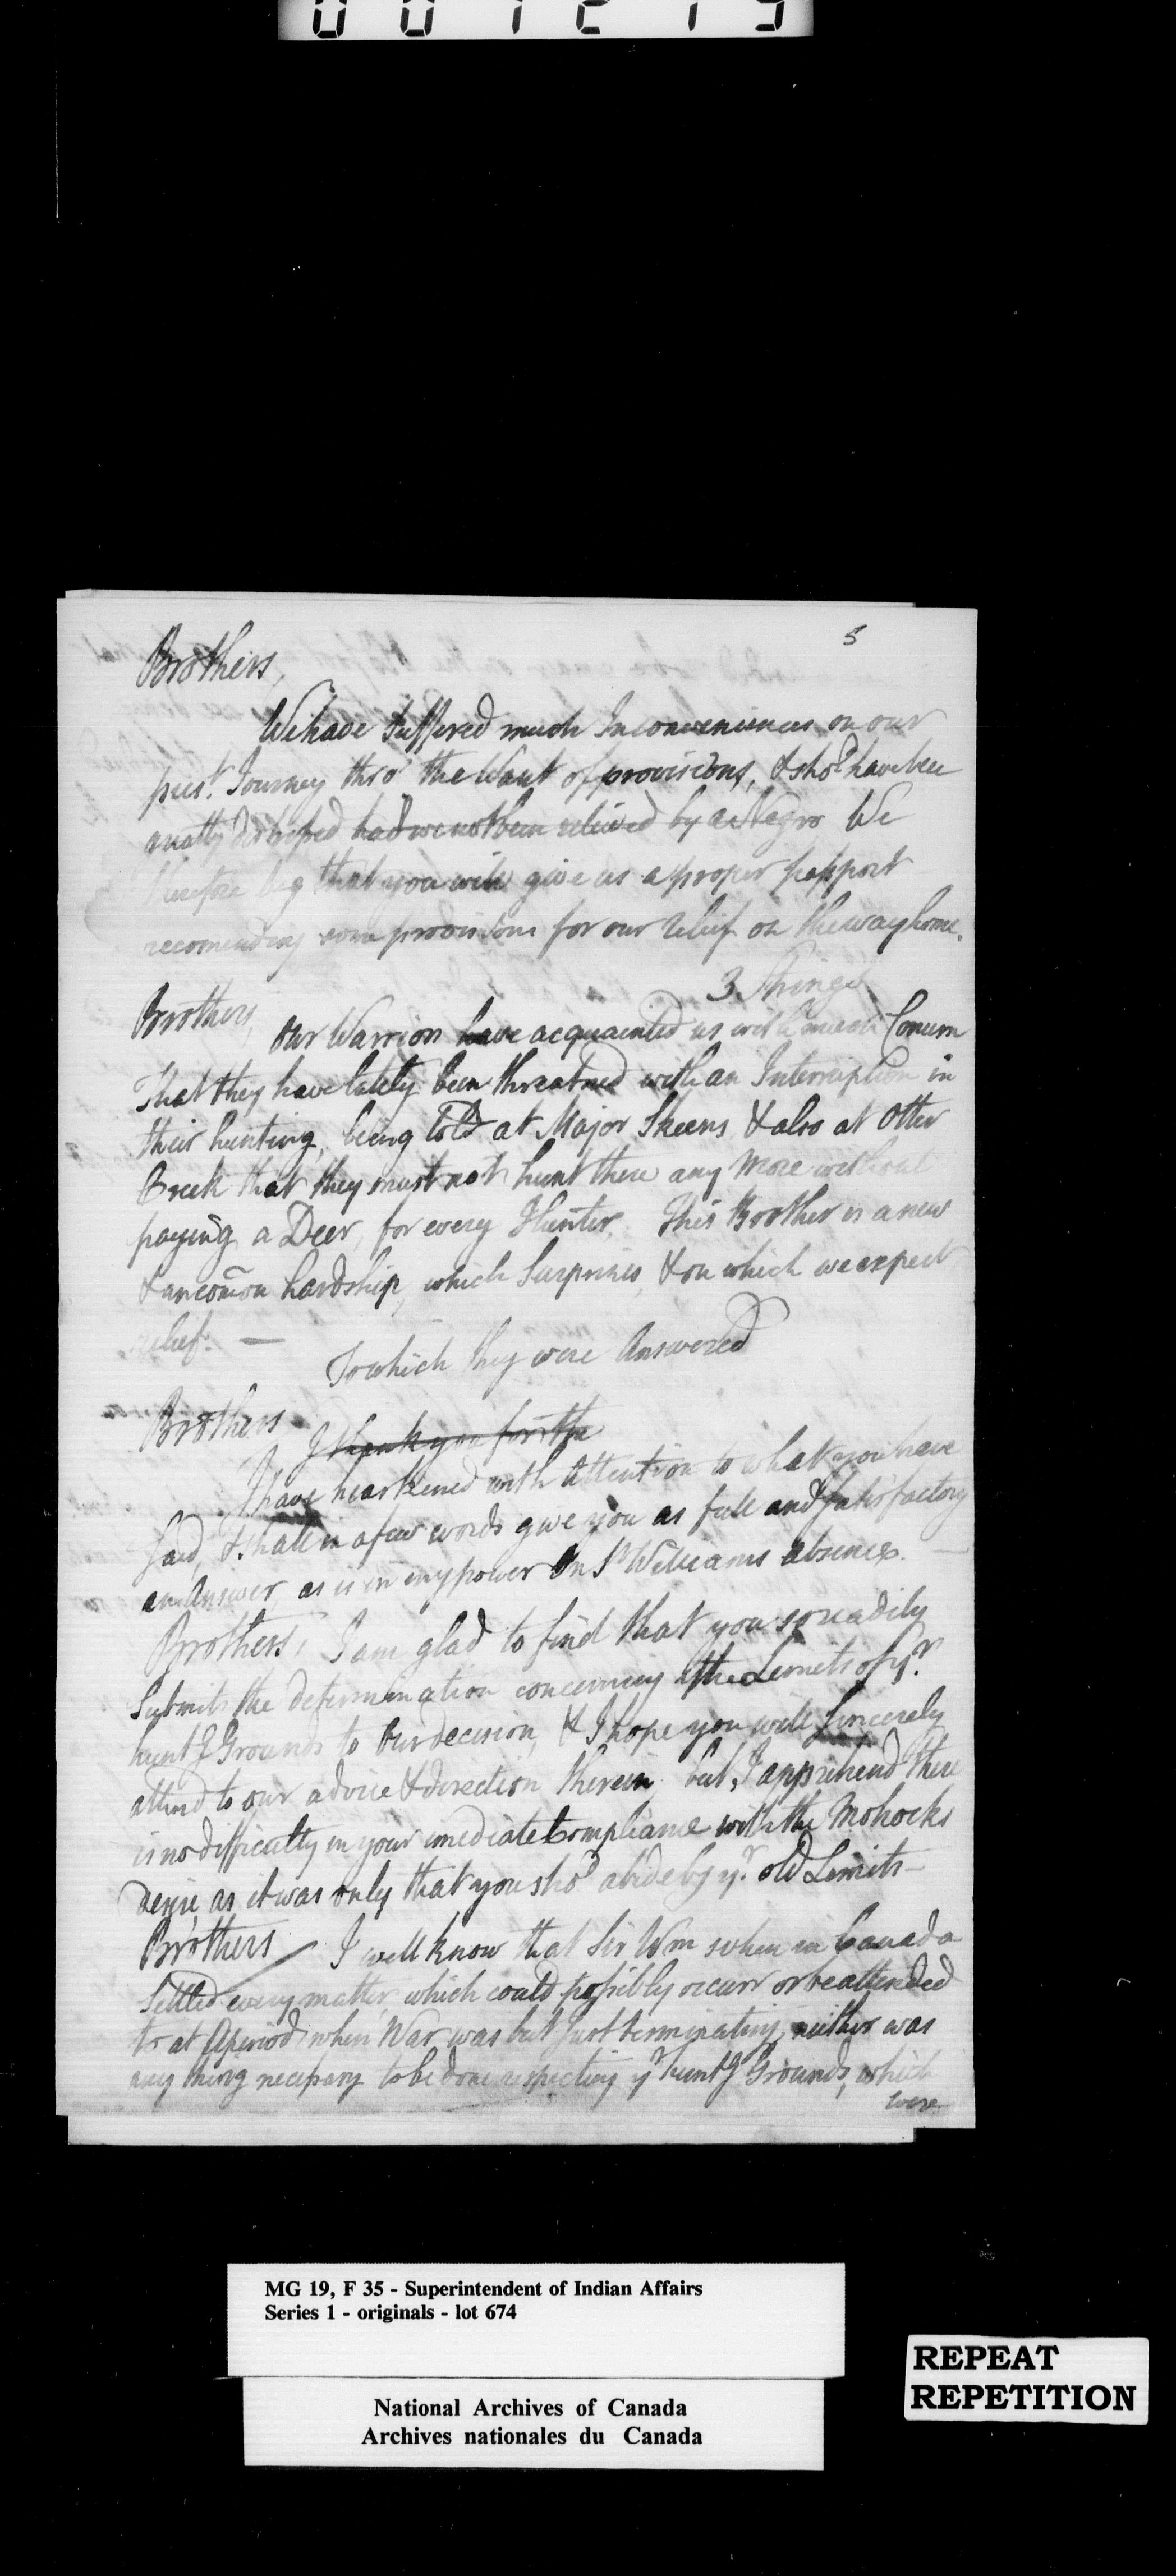 001219
5
Brothers,
We have Suffered much Inconveniences on our
prest. Journey thro' the Want of provisions, & shod. have been
greatly distressed had we not been relieved by a Negro We
therefore beg that you will give us a proper passport
recomending some provisions for our relief on the way home.
3 Strings
Brothers,
Our Warriors have acquainted us with much Concern
That they have lately been threatned with an Interruption in
their hunting, being told at Major Skeens, & also at Otter
Creek that they must not hunt there any more without
paying a Deer, for every Hunter. This Brother is a new
& uncom̄on hardship, which Surprises, & on which we expect
relief. —
To which they were Answered
Brothers
I thank you for the
I have hearkened with Attention to what you have
Said, & shall in a few words give you as full and Satisfactory
an Answer, as is in my power In Sr Williams absence. —
Brothers, I am glad to find that you so readily
Submit the determination concerning the Limits of yr.
huntg Grounds to Our decision, & I hope you will Sincerely
attend to our advice & direction therein, but I apprehend there
is no difficulty in your imediate Compliance with the Mohocks
desire, as it was only that you shod. abide by yr. old Limits —
Brothers I well know that Sir Wm when in Canada
Settled every matter, which could possibly occurr or be attended
to at a period when War was but Just terminating, neither was
any thing necessary to be done respecting yr huntg Grounds, which
were
MG 19, F 35 - Superintendent of Indian Affairs
Series 1 - originals - lot 674
National Archives of Canada
Archives nationales du Canada
REPEAT
REPETITION